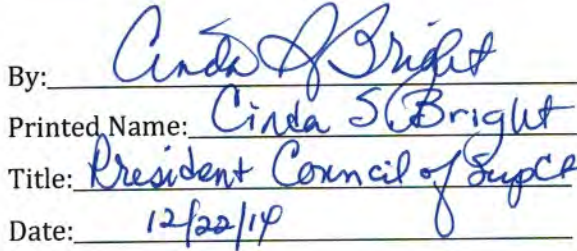 By: Cinda S Bright
Printed Name: Cinda S. Bright
Title: President Council of SupCt
Date: 12/22/14